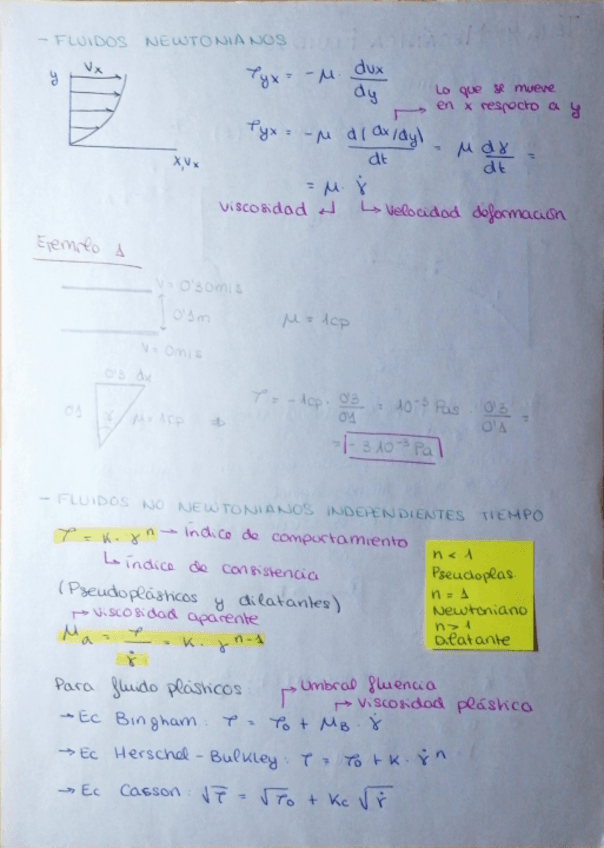 - FLUIDOS NEWTONIANOS
y
Vx
x, Vx
τyx = - μ · dvx/dy
Lo que se mueve
en x respecto a y
τyx = - μ d(dx/dy)/dt = μ dγ/dt =
= μ · γ̇
viscosidad ↲ ↳ velocidad deformación
Ejemplo 1
V = 0'30m/s
0'1m
μ = 1cp
V = 0m/s
0'3 dx
0'1 γ μ = 1cp ⇒
τ = - 1cp · 0'3/0'1 = 10⁻³ Pas · 0'3/0'1 =
= - 3 10⁻³ Pa
- FLUIDOS NO NEWTONIANOS INDEPENDIENTES TIEMPO
τ = K · γⁿ → índice de comportamiento
↳ índice de consistencia
(Pseudoplásticos y dilatantes)
↱ viscosidad aparente
μa = τ/γ̇ = K · γⁿ⁻¹
n < 1
Pseudoplas
n = 1
Newtoniano
n > 1
Dilatante
Para fluido plásticos
↱ Umbral fluencia
↱ viscosidad plástica
→ Ec Bingham: τ = τ0 + μB · γ̇
→ Ec Herschel - Bulkley: τ = τ0 + K · γ̇ⁿ
→ Ec Casson: √τ = √τ0 + Kc √γ̇